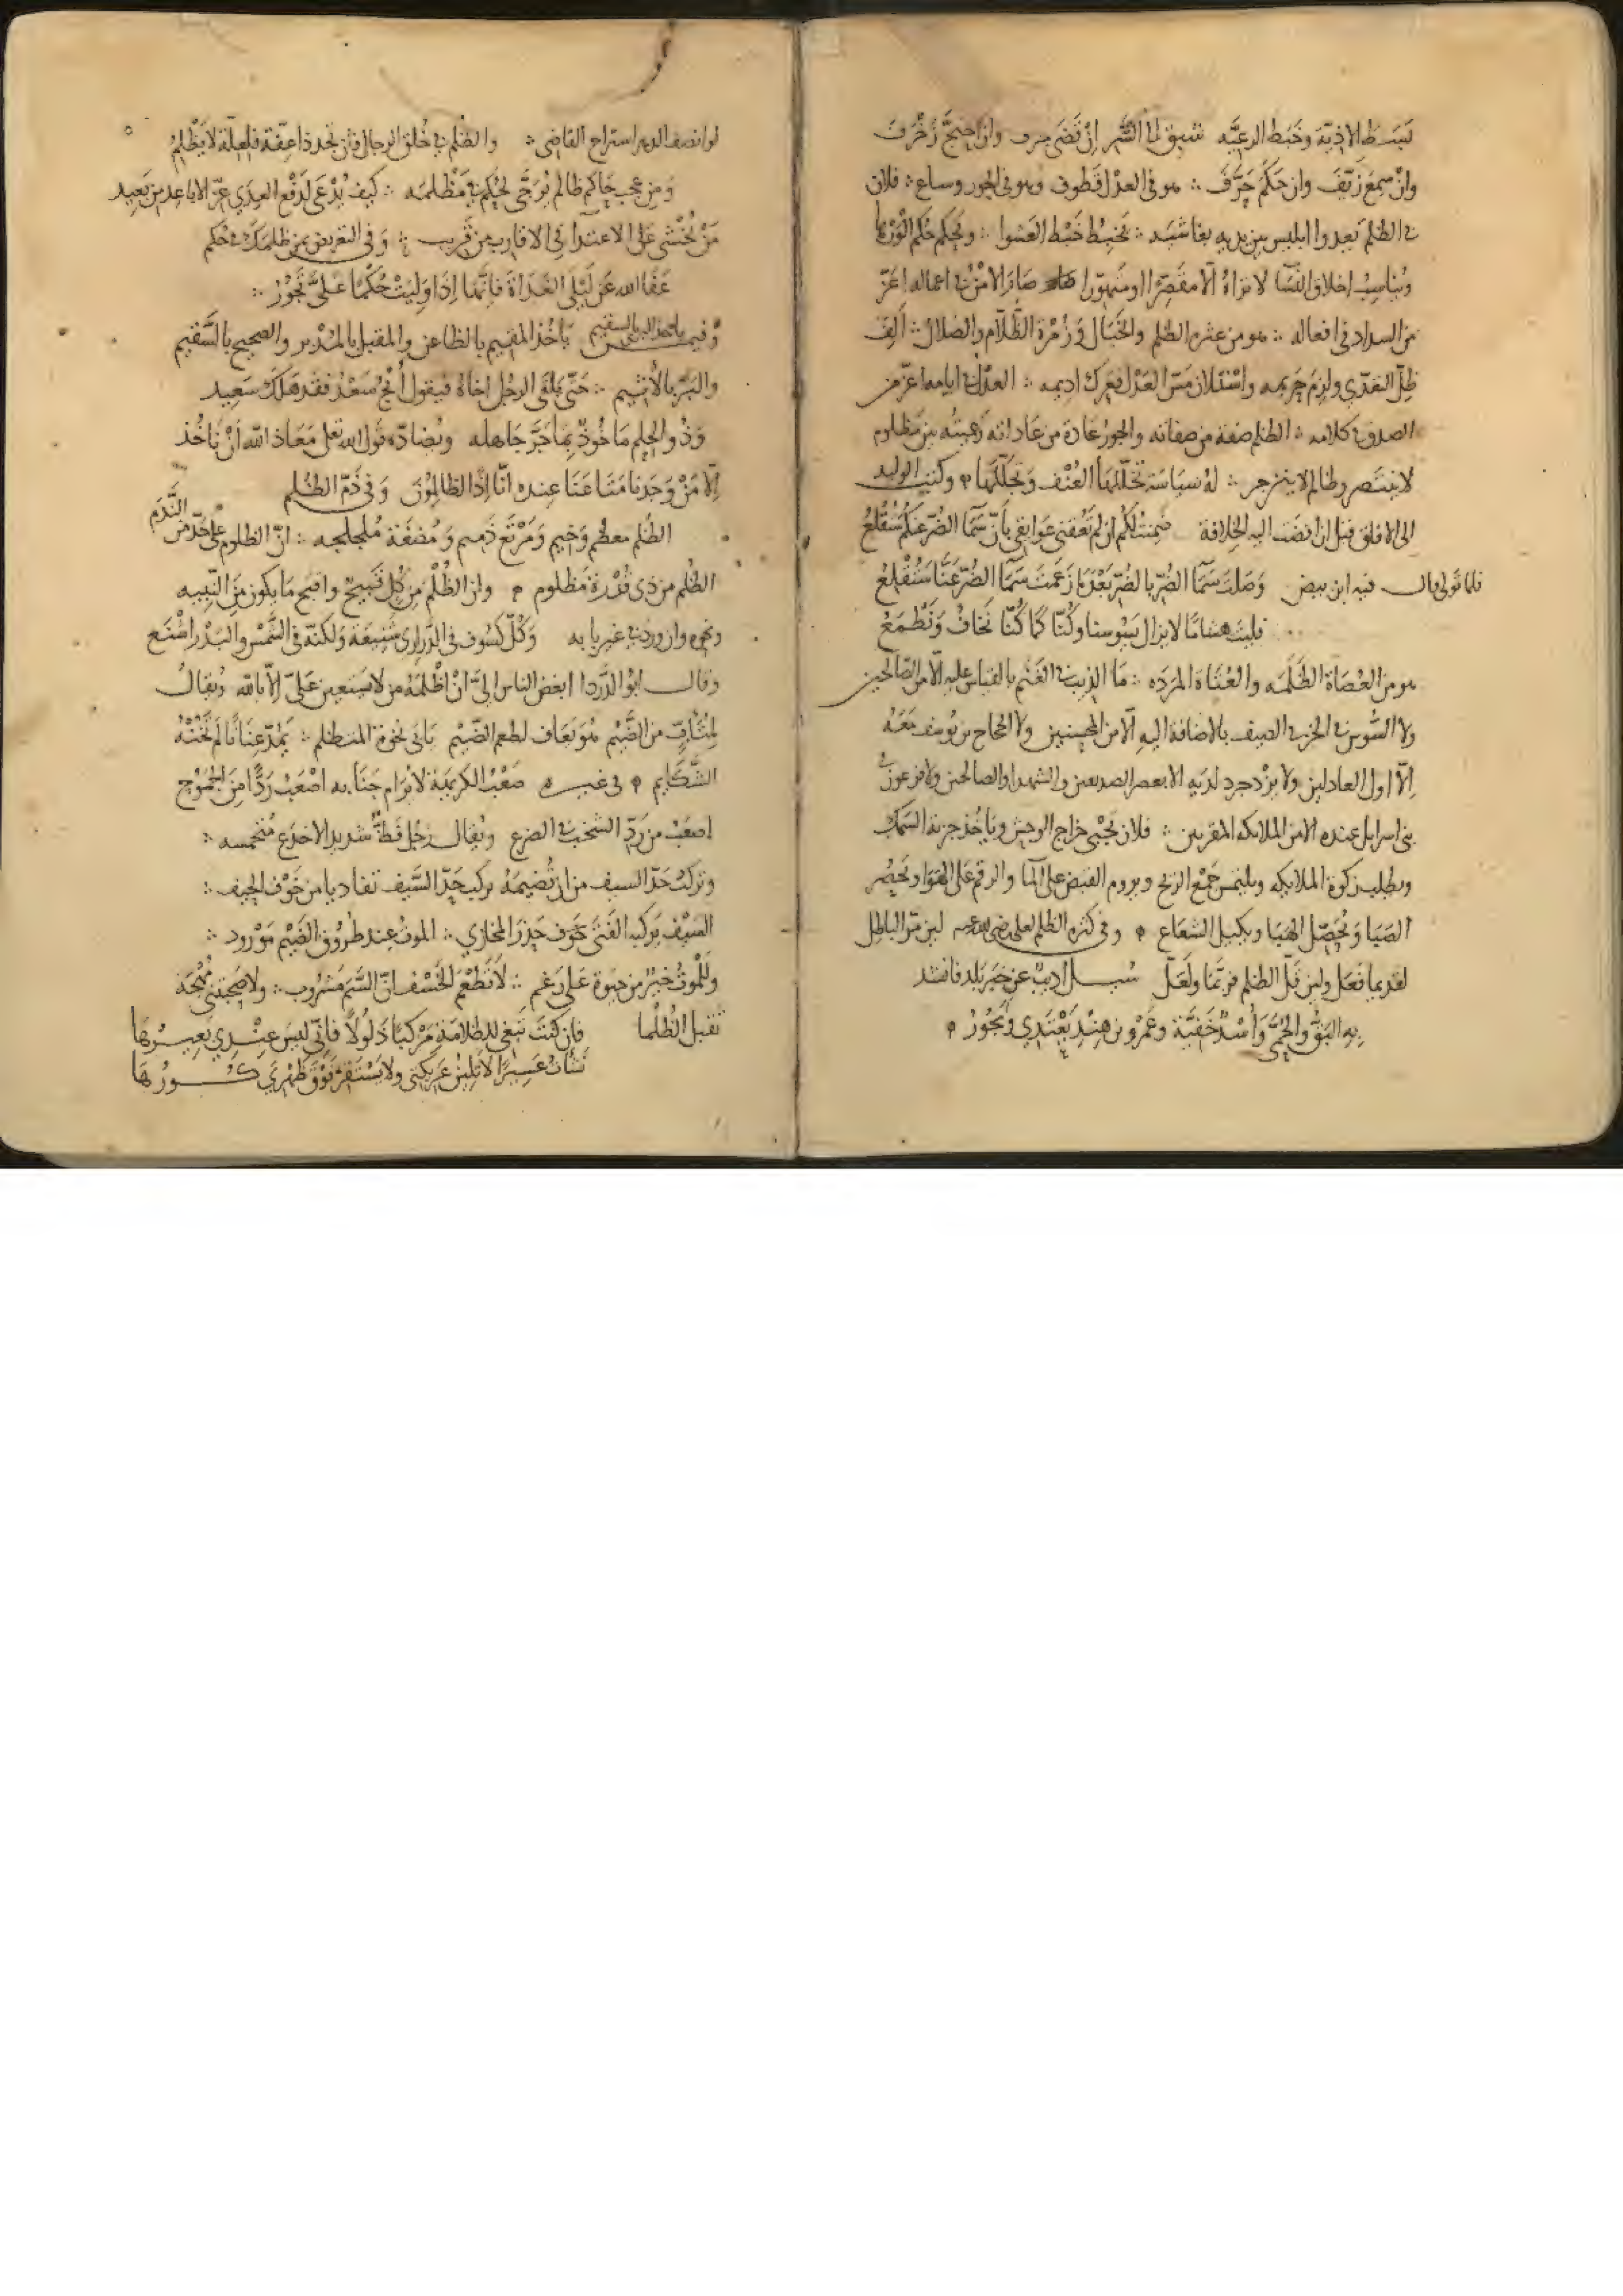 يبسط الاذية وخبط الرعيه ان قضى حرف وان احتج زخرف
وان سمع زيف وان حكم حرف هو في العدل قطوف وهو في الجور وساع فلان
في الظلم يعدوا ابليس بين يديه بغاشية يخبط خبط العشوا ويحكم حكم الورها
ويناسب اخلاق النسا لا نراه الا مقصرا او متهورا صار الامن في اعماله اعز
من السداد في افعاله هو من عثره الظلم والخبال وزمرة الظلام والضلال الف
ظل التعدي ولزم حريمه واستلان مس العدل فعرك اديمه العدل في ايامه اعز من
الصدق في كلامه الظلم صفة من صفاته والجور عادة من عاداته رعيته بين مظلوم
لا ينتصر وظالم لا ينزجر له سياسة تخللها العنف وتجللها وكتب الوليد
الى الافاق قبل ان افضت اليه الخلافة ضمنت لكم ان لم تعقني عوايقي بان سما الضر عنكم ستقلع
فلما تولى قال فيه ابن بيض وصلت سما الضر بالضر بعدما زعمت سما الضر عنا ستقلع
فليت هشاما لا يزال يسوسنا وكنا كما كنا نخاف ونطمع
هو من العصاة الظلمه والعتاة المرده ما الذيب في الغنم بالقياس عليه الا من الصالحين
ولا السوس في الخز في الصيف بالاضافة اليه الا من المحسنين ولا الحجاج بن يوسف معه
الا اول العادلين ولا يزدجرد لديه الا بعض الصديقين والشهدا والصالحين ولا فرعون في
بني اسرايل عنده الا من الملايكه المقربين فلان يجبي خراج الوحش وياخذ جزية السمك
ويطلب زكوة الملايكه ويلتمس جمع الريح ويروم القبض على الما والرقم على الهوا ويحصر
الضيا ويحصل الهبا ويكيل الشعاع وفي كثره الظلم لعلي رضي الله عنه لين امر الباطل
لقديما فعل ولين قل الظلم فربما ولعل سيل اديب عن خبر بلد فانشد
به البق والحمى واسد خفية وعمرو بن هند يعتدي ويجور
لو انصف الدهر استراح القاضي والظلم في خلق الرجال فان تجد ذا عفة فلعلة لا يظلم
ومن عجب حاكم ظالم يرجى لحكم في مظلمه كيف يدعى لدفع العدى عن الاباعد من بعيد
من يخشى على الاعتدا في الاقارب من قريب وفي التعريض بمن ظلمك في حكم
عفا الله عن ليلى الغداة فانها اذا وليت حكما علي تجور
وفيمن ياخذ البري بالسقيم ياخذ المقيم بالظاعن والمقبل بالمدبر والصحيح بالسقيم
والبر بالاثيم حتى يلقى الرجل اخاه فيقول انج سعد فقد هلك سعيد
وذو الحلم ماخوذ بما جر جاهله ويضاده قول الله تعلى معاذ الله ان ناخذ
الا من وجدنا متاعنا عنده انا اذا لظالمون وفي ذم الظلم
الظلم مطعم وخيم ومرتع ذميم ومضغة ملجلجه ان الظلوم على حد من الندم
الظلم من ذي قدرة مظلوم وان الظلم من كل قبيح واقبح ما يكون من النبيه
ونحوه وان ورد في غير بابه وكل كسوف في الدراري شنيعة ولكنه في الشمس والبدر اشنع
وقال ابو الدردا ابغض الناس الي ان اظلمه من لا يستعين علي الا بالله ويقال
من الضيم هو يعاف لطعم الضيم يابى نخوة المتظلم يمد عنانا لم تخنه
الشكايم في غيره صعب الكريهة لا يرام جنابه اصعب ردا من الجموح
اصعب من رد الشخب في الضرع ويقال رجل فظ شديد الاخدع
وتركب حد السيف من ان تضيمه يركب حد السيف تفاديا من خوف الحيف
السيف يركبه الفتى خوف حذر المخازي الموت عند طروق الضيم مورود
وللموت خير من حيوة على رغم لا تطعم الخسف ان السم مشروب ولا صحبتني مهجة
تقبل الظلما فان كنت تبغي للظلامة مركبا ذلولا فاني ليس عندي بعيرها
نشات عسيرا لا تلين عريكتي ولا يستقر فوق ظهري كورها